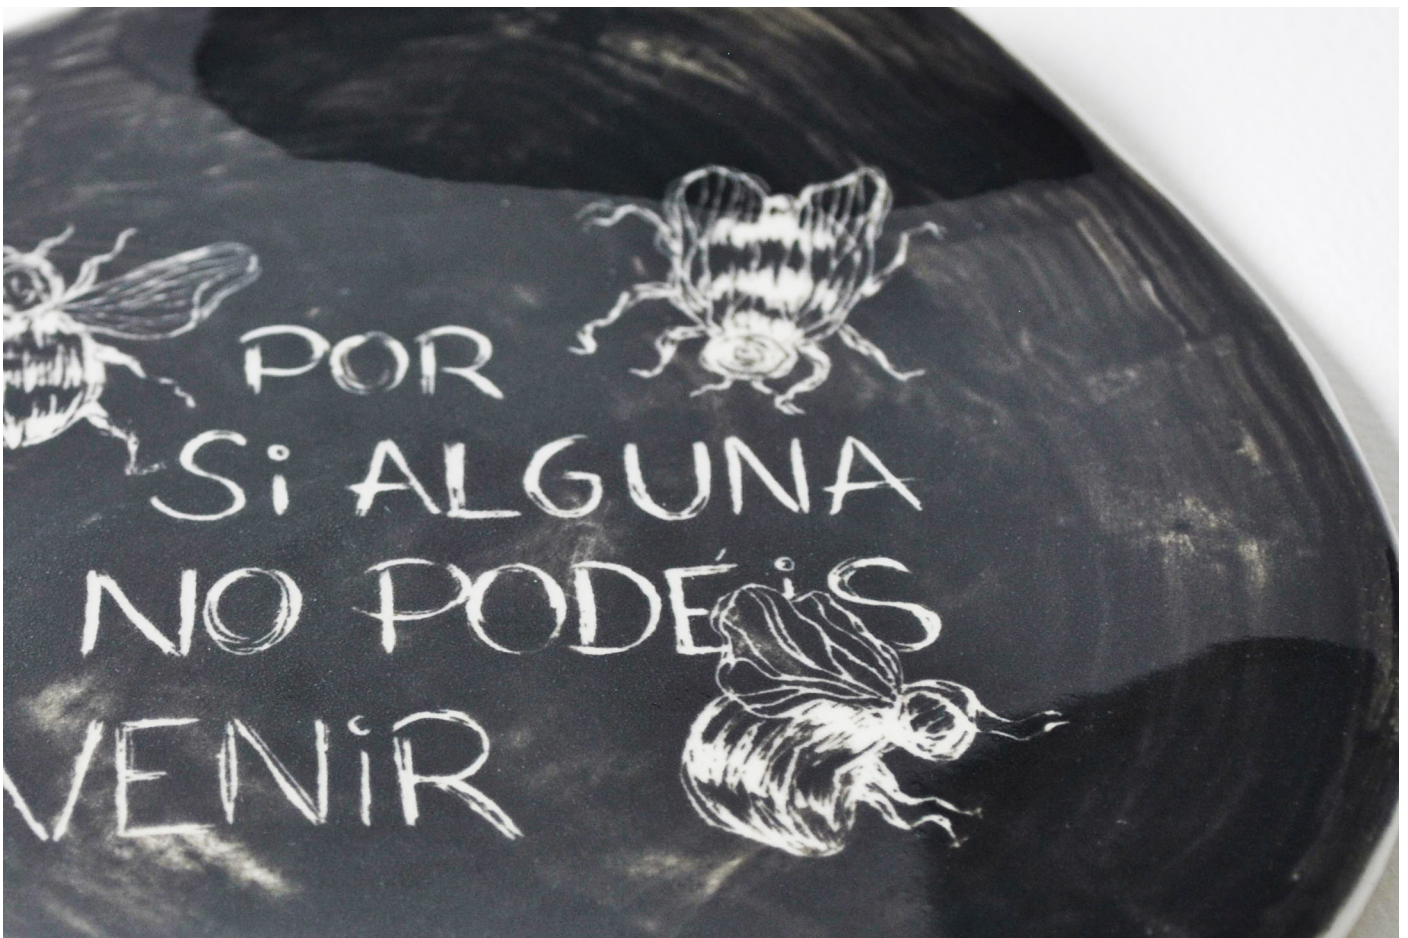 POR
Si ALGUNA
NO PODÉiS
VENiR